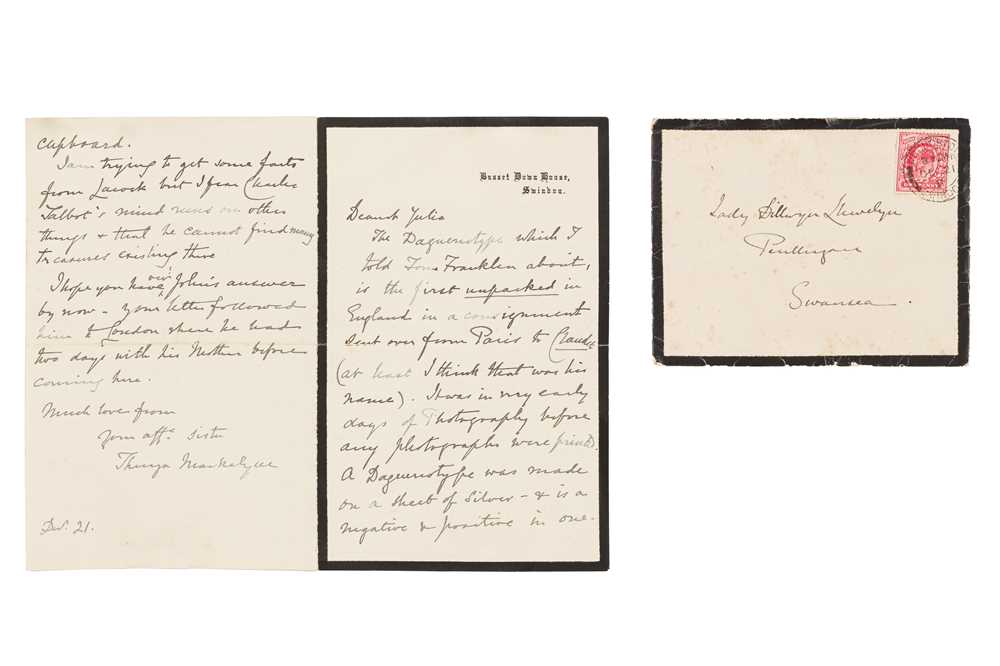 Basset Down House,
Swindon.
Dearest Julia
The Daguerreotype which I
told Tom Franklen about,
is the first unpacked in
England in a consignment
sent over from Paris to Claudet
(at least I think that was his
name). It was in very early
days of Photography before
any photographs were printed.
A Daguerreotype was made
on a sheet of Silver - & is a
negative & positive in one.
cupboard.
I am trying to get some facts
from Lacock but I fear Charles
Talbot's mind runs on other
things & that he cannot find many
treasures existing there
I hope you have John's answer
by now - your letter followed
him to London where he had
two days with his Mother before
coming here.
Much love from
your affte sister
Thereza Maskelyne
Dec. 21.
Lady Dillwyn Llewelyn
Penllergare
Swansea.
ONE PENNY